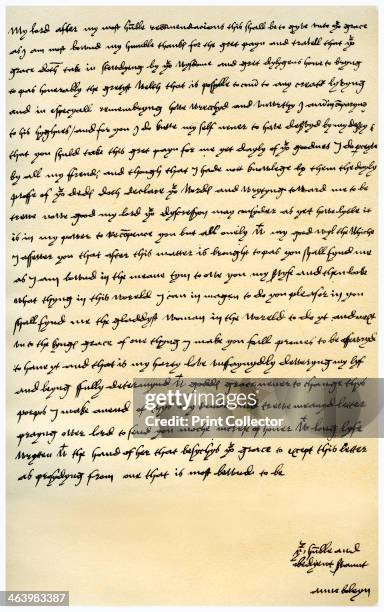 My lord after my most humble recomendacions this shall be to gyve unto yr grace
as I am most bownd my humble thanks for the gret payn and travell that yr
grace doth take in steudyeng by yr wysdome and gret dylygens howe to bryng
to pas honerably the gretyst welth that is possyble to com to any creatour lyvyng
and in especyall remembryng howe wrecchyd and unwrthy I am in comparyng
to his hyghnes and for you I do knowe my self never to have deservyd by my desertys
that you shuld take this gret payn for me yet dayly of yr goodnes I do perceyve
by all my frends and though that I hade not knowlege by them the dayly
proffe of yr deds doth declare yr words and wrytyng toward me to be
trewe nowe good my lord yr dyscressyon may consyder as yet howe lytle it
is in my power to recompence you but all onely wt my good wyl the whiche
I assewer you that after this matter is brought to pas you shall fynd me
as I am bownd in the meane tym to owe you my servyse and then looke
what thyng in this woreld I can immagen to do you pleasor in you
shall fynd me the gladdyst woman in the woreld to do yt and next
unto the kyngs grace of one thyng I make you full promes to be assewryd
to have yt and that is my harty love unffaynydly deweryng my lyf
and beyng fully determynd wt goddes grace never to change thys
porpos I make anend of thys my reude and trewe meaned letter
prayng ower lord to send you moche increse of honer wt long lyfe
wrytten wt the hand of her that besechys yr grace to except this letter
as prosydyng from one that is most bownde to be
yr humble and
obedyent servant
anne boleyn
gettyimages
Print Collector
464983387